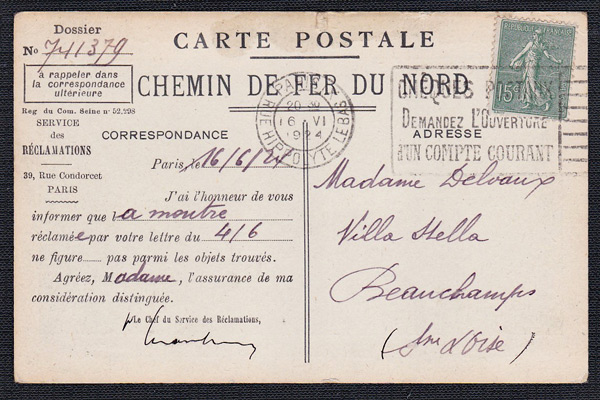 Dossier
No 741379
à rappeler dans
la correspondance
ultérieure
Reg du Com. Seine no 52.298
SERVICE
des
RÉCLAMATIONS
39, Rue Condorcet
PARIS
CARTE POSTALE
CHEMIN DE FER DU NORD
CORRESPONDANCE
Paris, le 16/6/24
J'ai l'honneur de vous
informer que la montre
réclamée par votre lettre du 4/6
ne figure pas parmi les objets trouvés.
Agréez, Madame, l'assurance de ma
considération distinguée.
Le Chef du Service des Réclamations,
PARIS
20 30
16 VI
1924
RUE HIPPOLYTE LEBAS
CHÈQUES POSTAUX
DEMANDEZ L'OUVERTURE
D'UN COMPTE COURANT
REPUBLIQUE FRANÇAISE
15c
ADRESSE
Madame Delvaux
Villa Stella
Beauchamps
(Sne d'Oise)